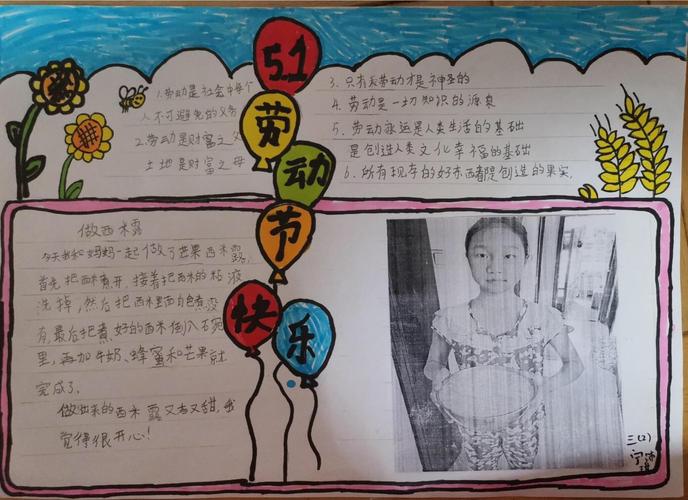 5.1
劳
动
节
快
乐
1.劳动是社会中每个
人不可避免的义务
2.劳动是财富之父
土地是财富之母
3.只有劳动才是神的
4.劳动是一切知识的源泉
5.劳动永远是人类生活的基础
是创造人类文化幸福的基础
6.所有现存的好东西都是创造的果实.
做西米露
今天我和妈妈一起做了芒果西米露,
首先把西米煮开,接着把西米的粘液
洗掉,然后把西米里面白色煮没
有,最后把煮好的西米倒入碗
里,再加牛奶、蜂蜜和芒果就
完成了。
做出来的西米露又香又甜,我
觉得很开心!
三(2)
宁